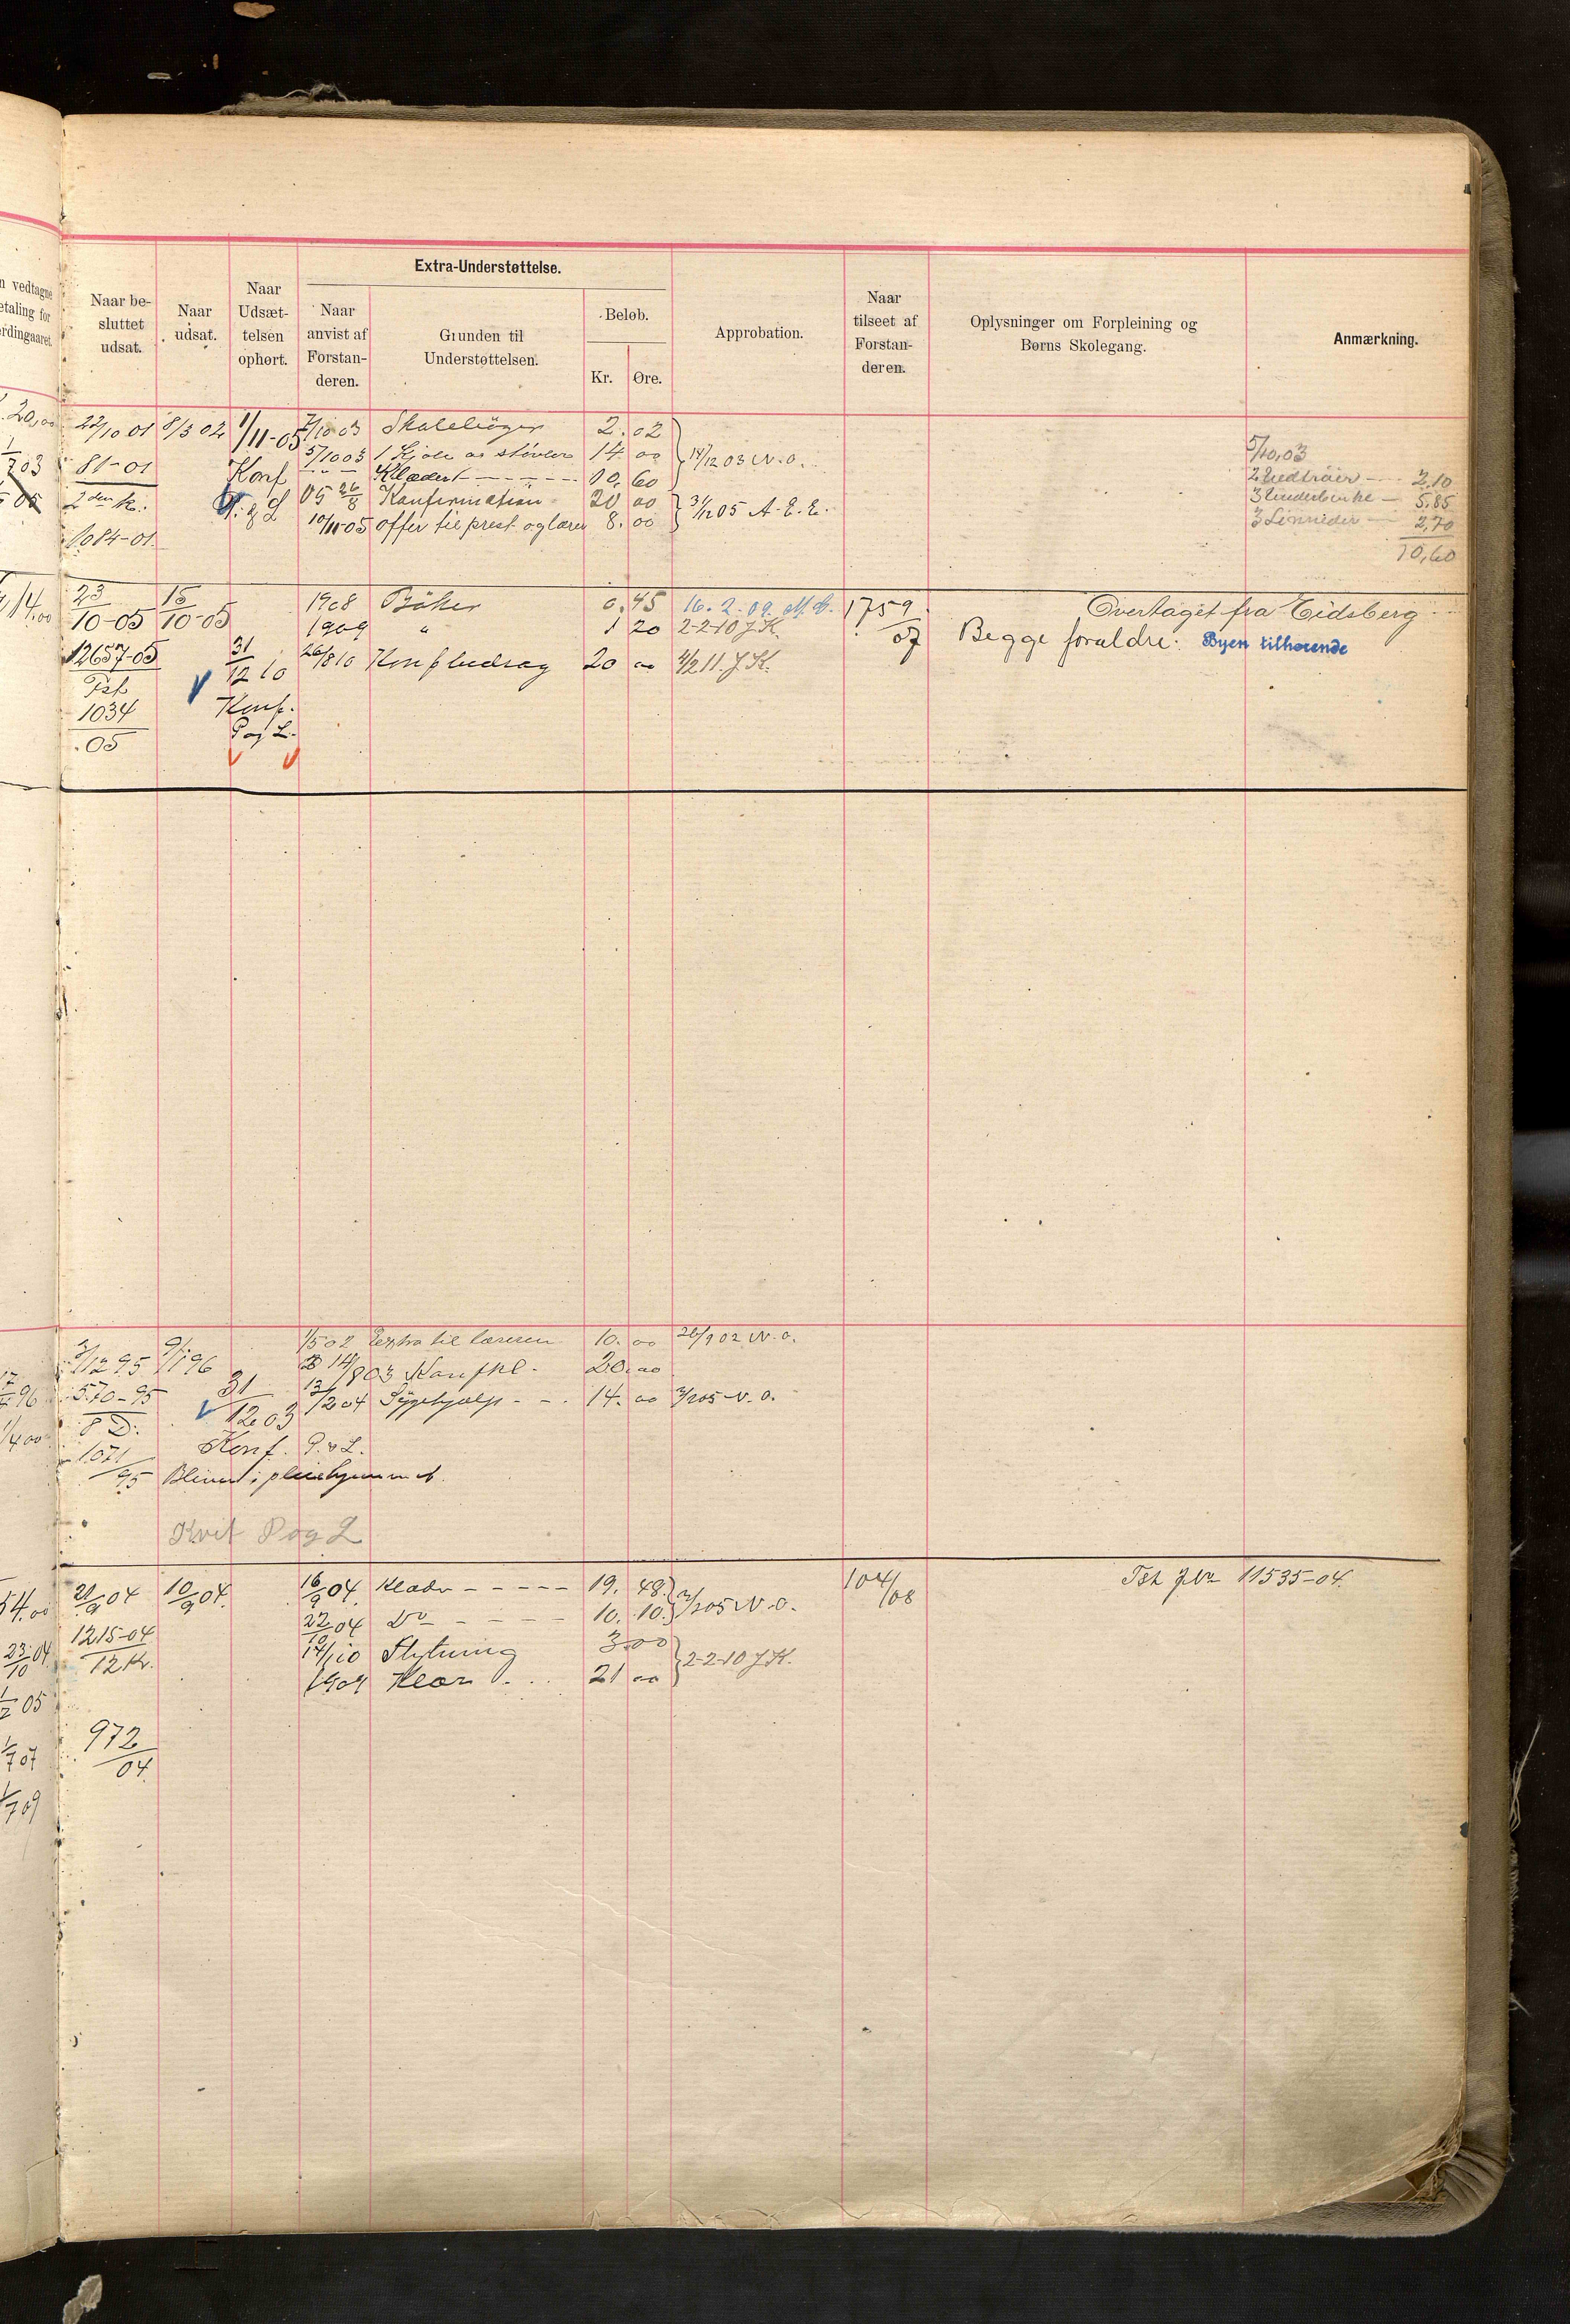 n vedtagne
etaling for
erdingaaret
Naar be-
sluttet
udsat.
Naar
udsat.
Naar
Udsæt-
telsen
ophørt.
Extra-Understøttelse.
Naar
anvist af
Forstan-
deren.
Grunden til
Understøttelsen.
Beløb.
Kr. Øre.
Approbation.
Naar
tilseet af
Forstan-
deren.
Oplysninger om Forpleining og
Børns Skolegang.
Anmærkning.
20,00
22/10 01 8/3 02 1/11-05 7/10 03 Skolebøger 2. 02
81-01 5/10 03 1 Kjole og støvler 14 00 14/12 03 N. O.
Konf Klæder 10. 60
2den K. P. & L 05 26/8 Konfirmation 20 00 31/12 05 A. E. E.
1084-01 10/11-05 offer til prest og lærer 8. 00
5/10,03
2 Uldtrøier 2,10
3 Underbenke 5,85
3 Linneder 2,70
10,60
14,00 23/10-05 15/10-05 1908 Bøker 0. 45 16. 2. 09. 1759/07 Overtaget fra Eidsberg
1909 " 1 20 2-2-10 J K. Begge forældre: Byen tilhørende
12657-05 31/12 10 26/8 10 Konf bidrag 20 00 4/2 11. J. K.
Tsh
1034 Konf.
05 P og L.
2/12 95 9/1 96 1/5 02 Extra til læreren 10. 00 26/9 02 N. O.
14/8 03 Konfkl. 20. 00
570-95 31/12 03 13/12 04 Sygehjælp 14. 00 2/2 05 N. O.
8 D.
1071/95 Konf. P. & L.
Bliver i pleiehjemmet.
Kvit P og L
54.00 21/9 04 10/9 04. 16/9 04. Klæder 19. 48. 2/2 05 N. O. 104/08 Tsh J.No 11535-04.
1215-04 22/10 04 Do 10. 10.
12 Kr. 14/1 10 Flytning 3.00 2-2-10 J K.
1909 Klær 21 00
972/04.